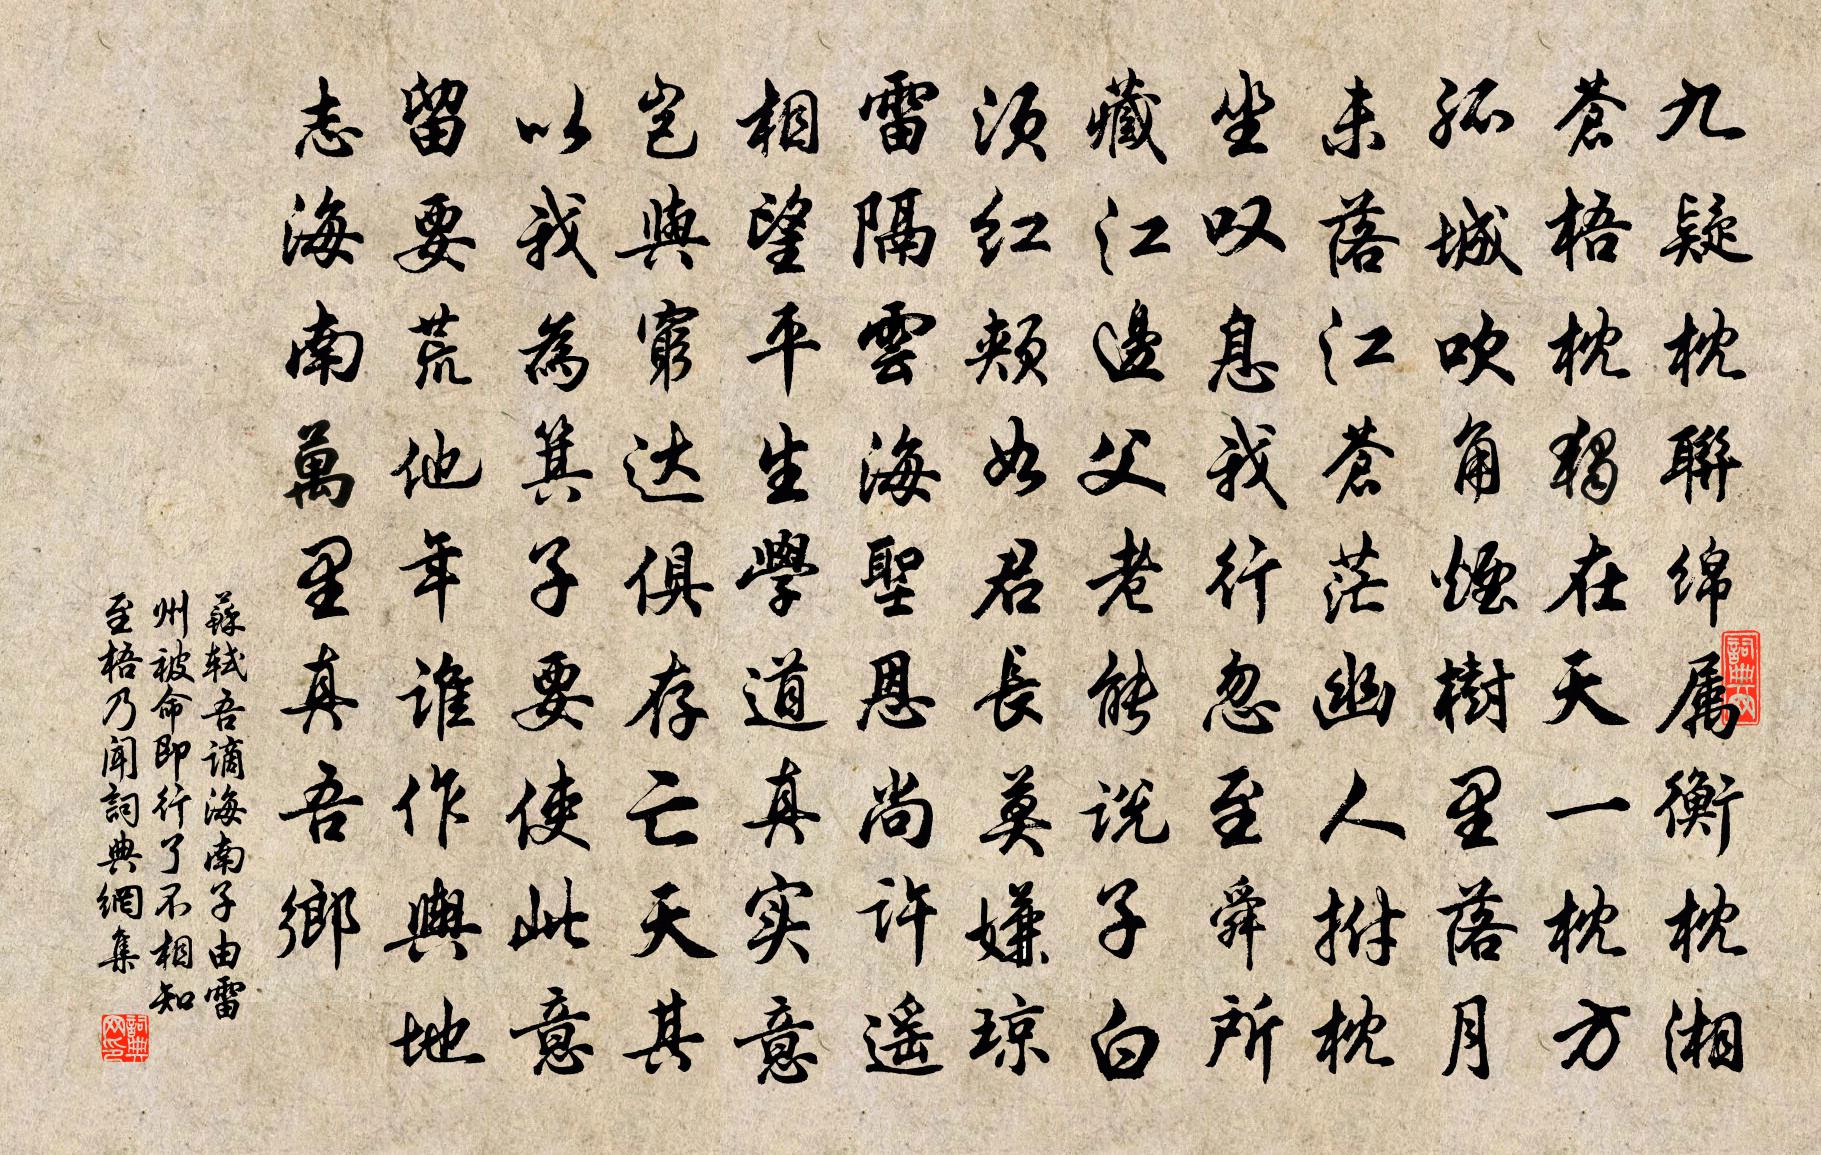 九疑枕聯绵属衡枕湘
蒼梧枕獨在天一枕方
孤城吹角煙樹里落月
未落江蒼茫幽人拊枕
坐叹息我行忽至舜所
藏江邊父老能说子白
须红颊如君長莫嫌琼
雷隔雲海聖恩尚许遥
相望平生學道真实意
岂與窮达俱存亡天其
以我為箕子要使此意
留要荒他年谁作輿地
志海南萬里真吾鄉
蘇軾吾谪海南子由雷
州被命即行了不相知
至梧乃闻詞典網集
詞典网
詞典网印